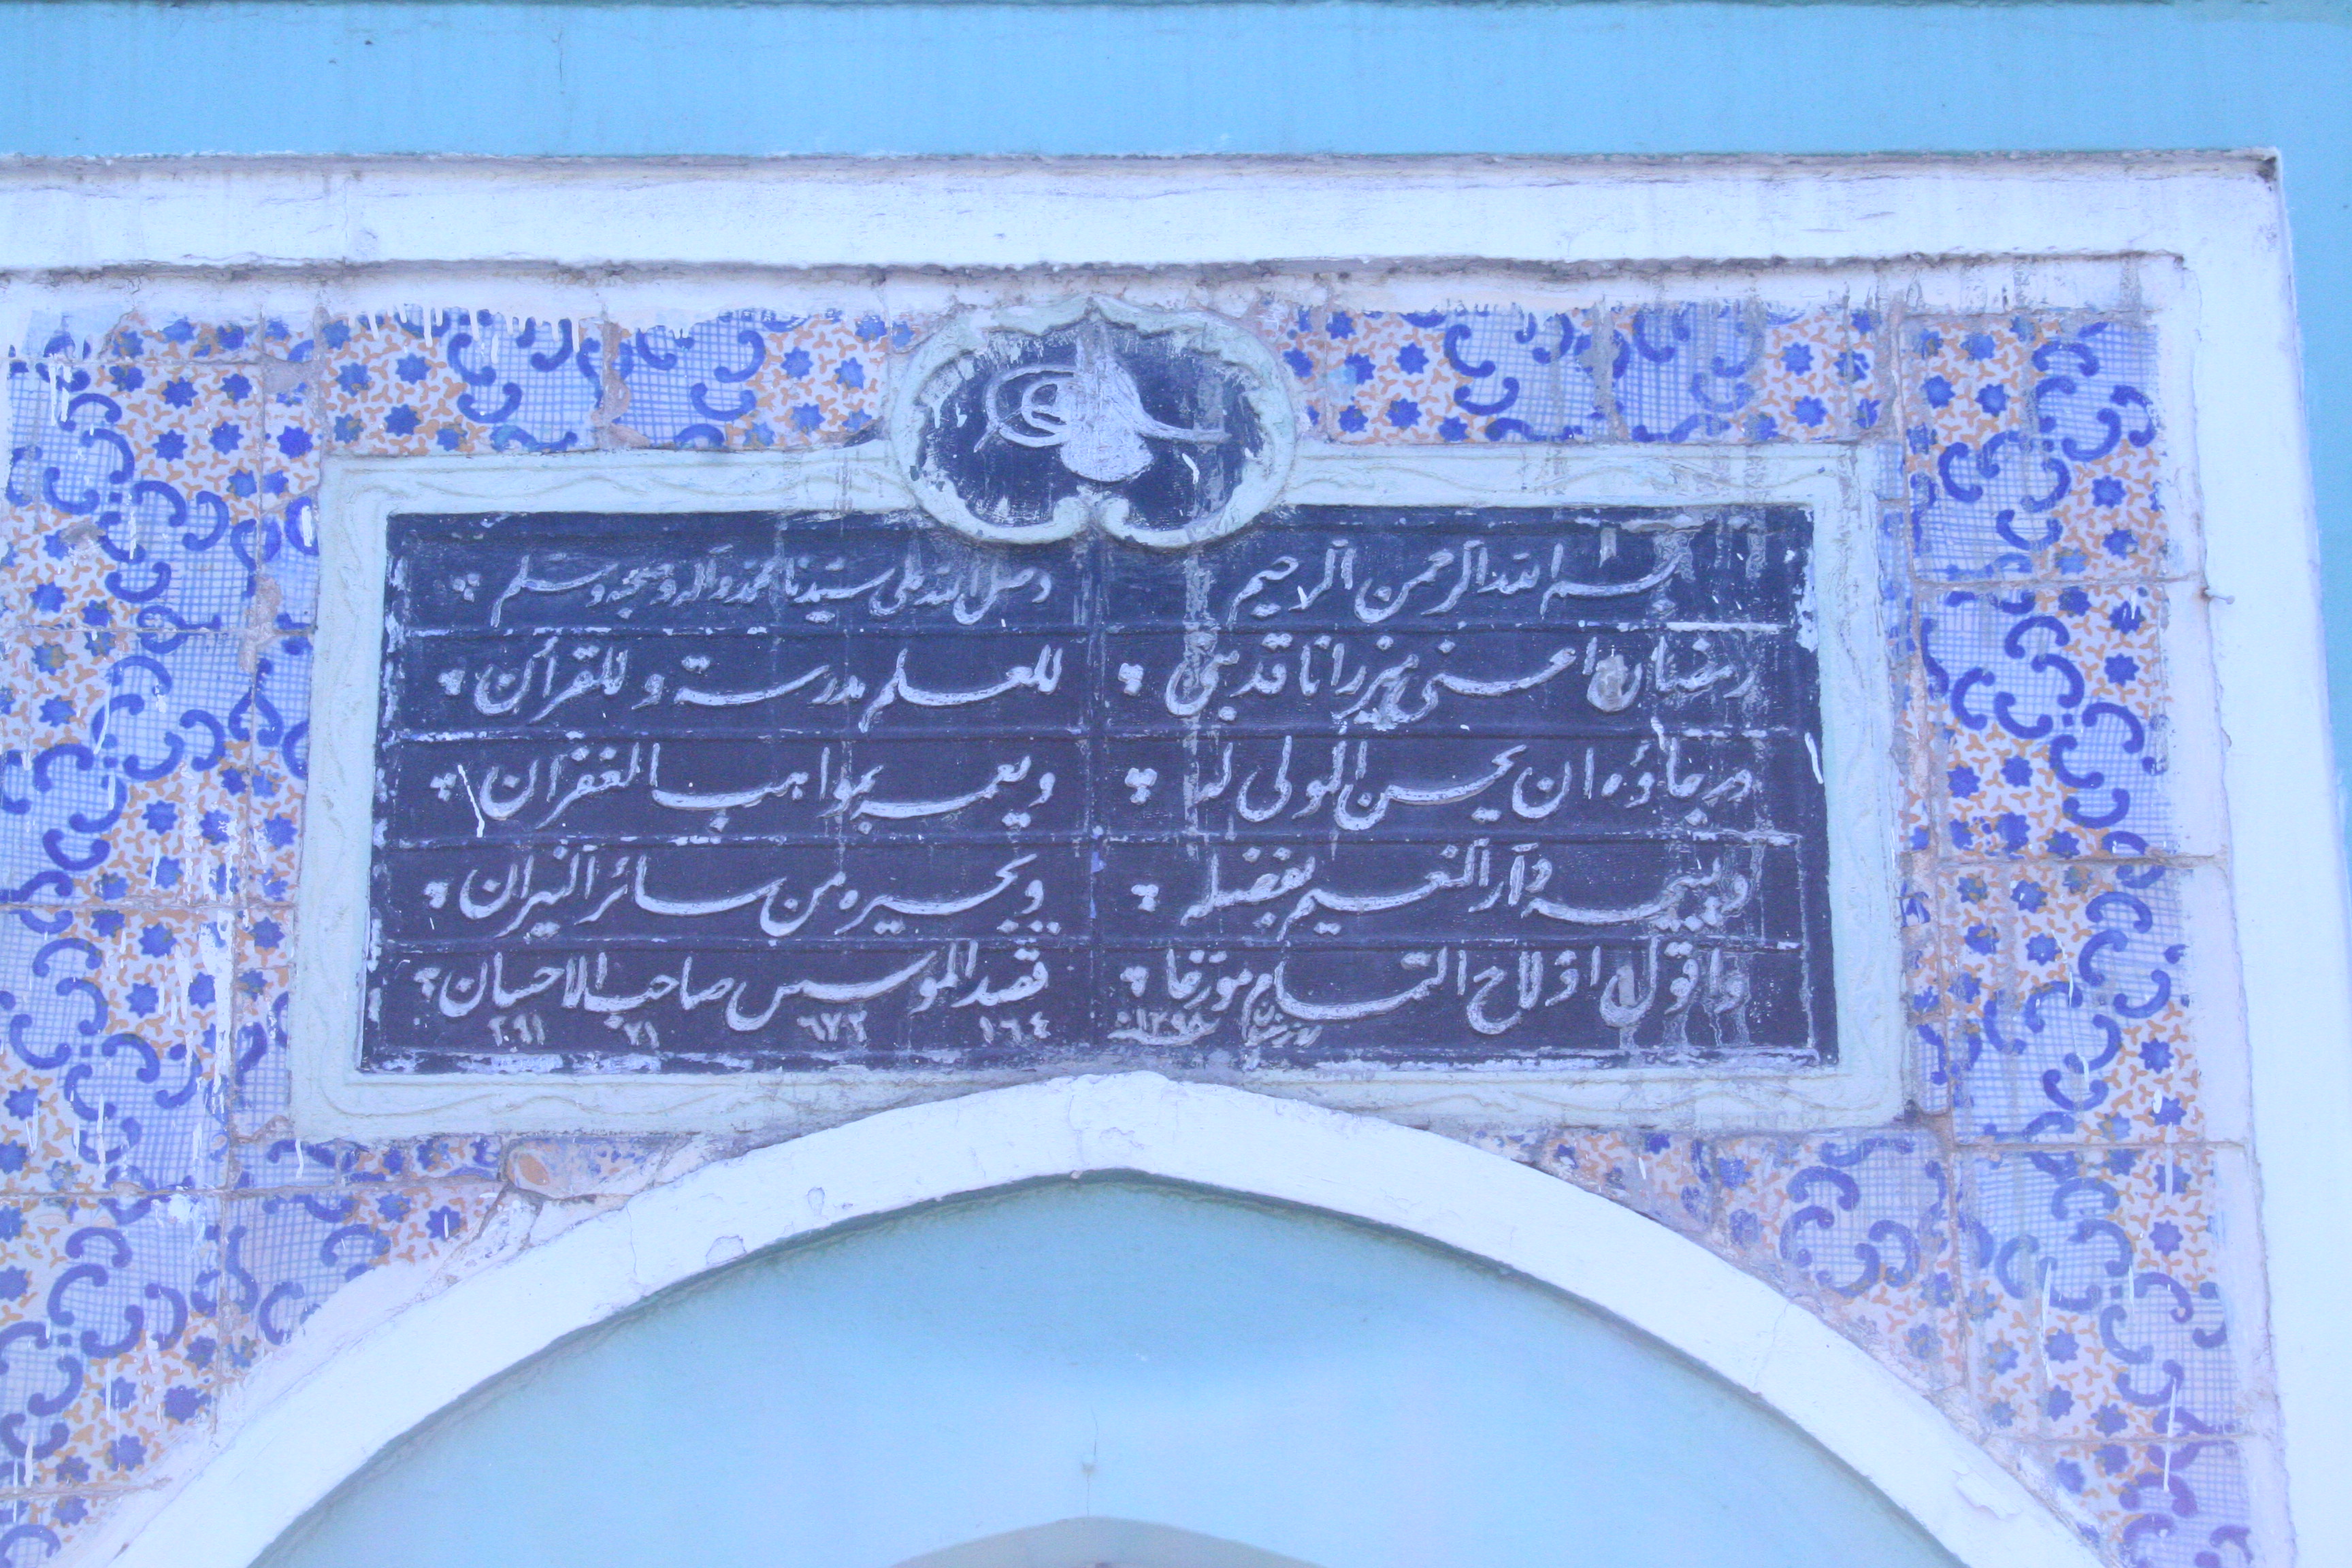 بسم الله الرحمن الرحيم
وصل الله على سيدنا محمد وآله وصحبه وسلم
رمضان اعني ميزرانا قد بنى
للعلم مدرسة وللقرآن
ورجاؤه ان يحسن المولى له
ويعمه بمواهب الغفران
ويبيحه دار النعيم بفضله
ويجيره من سائر النيران
واقول اذ لاح التمام مؤرخا
قصد المؤسس صاحب الاحسان
سنة ١٢٩٨
١٦٤ ٦٧٢ ٧١